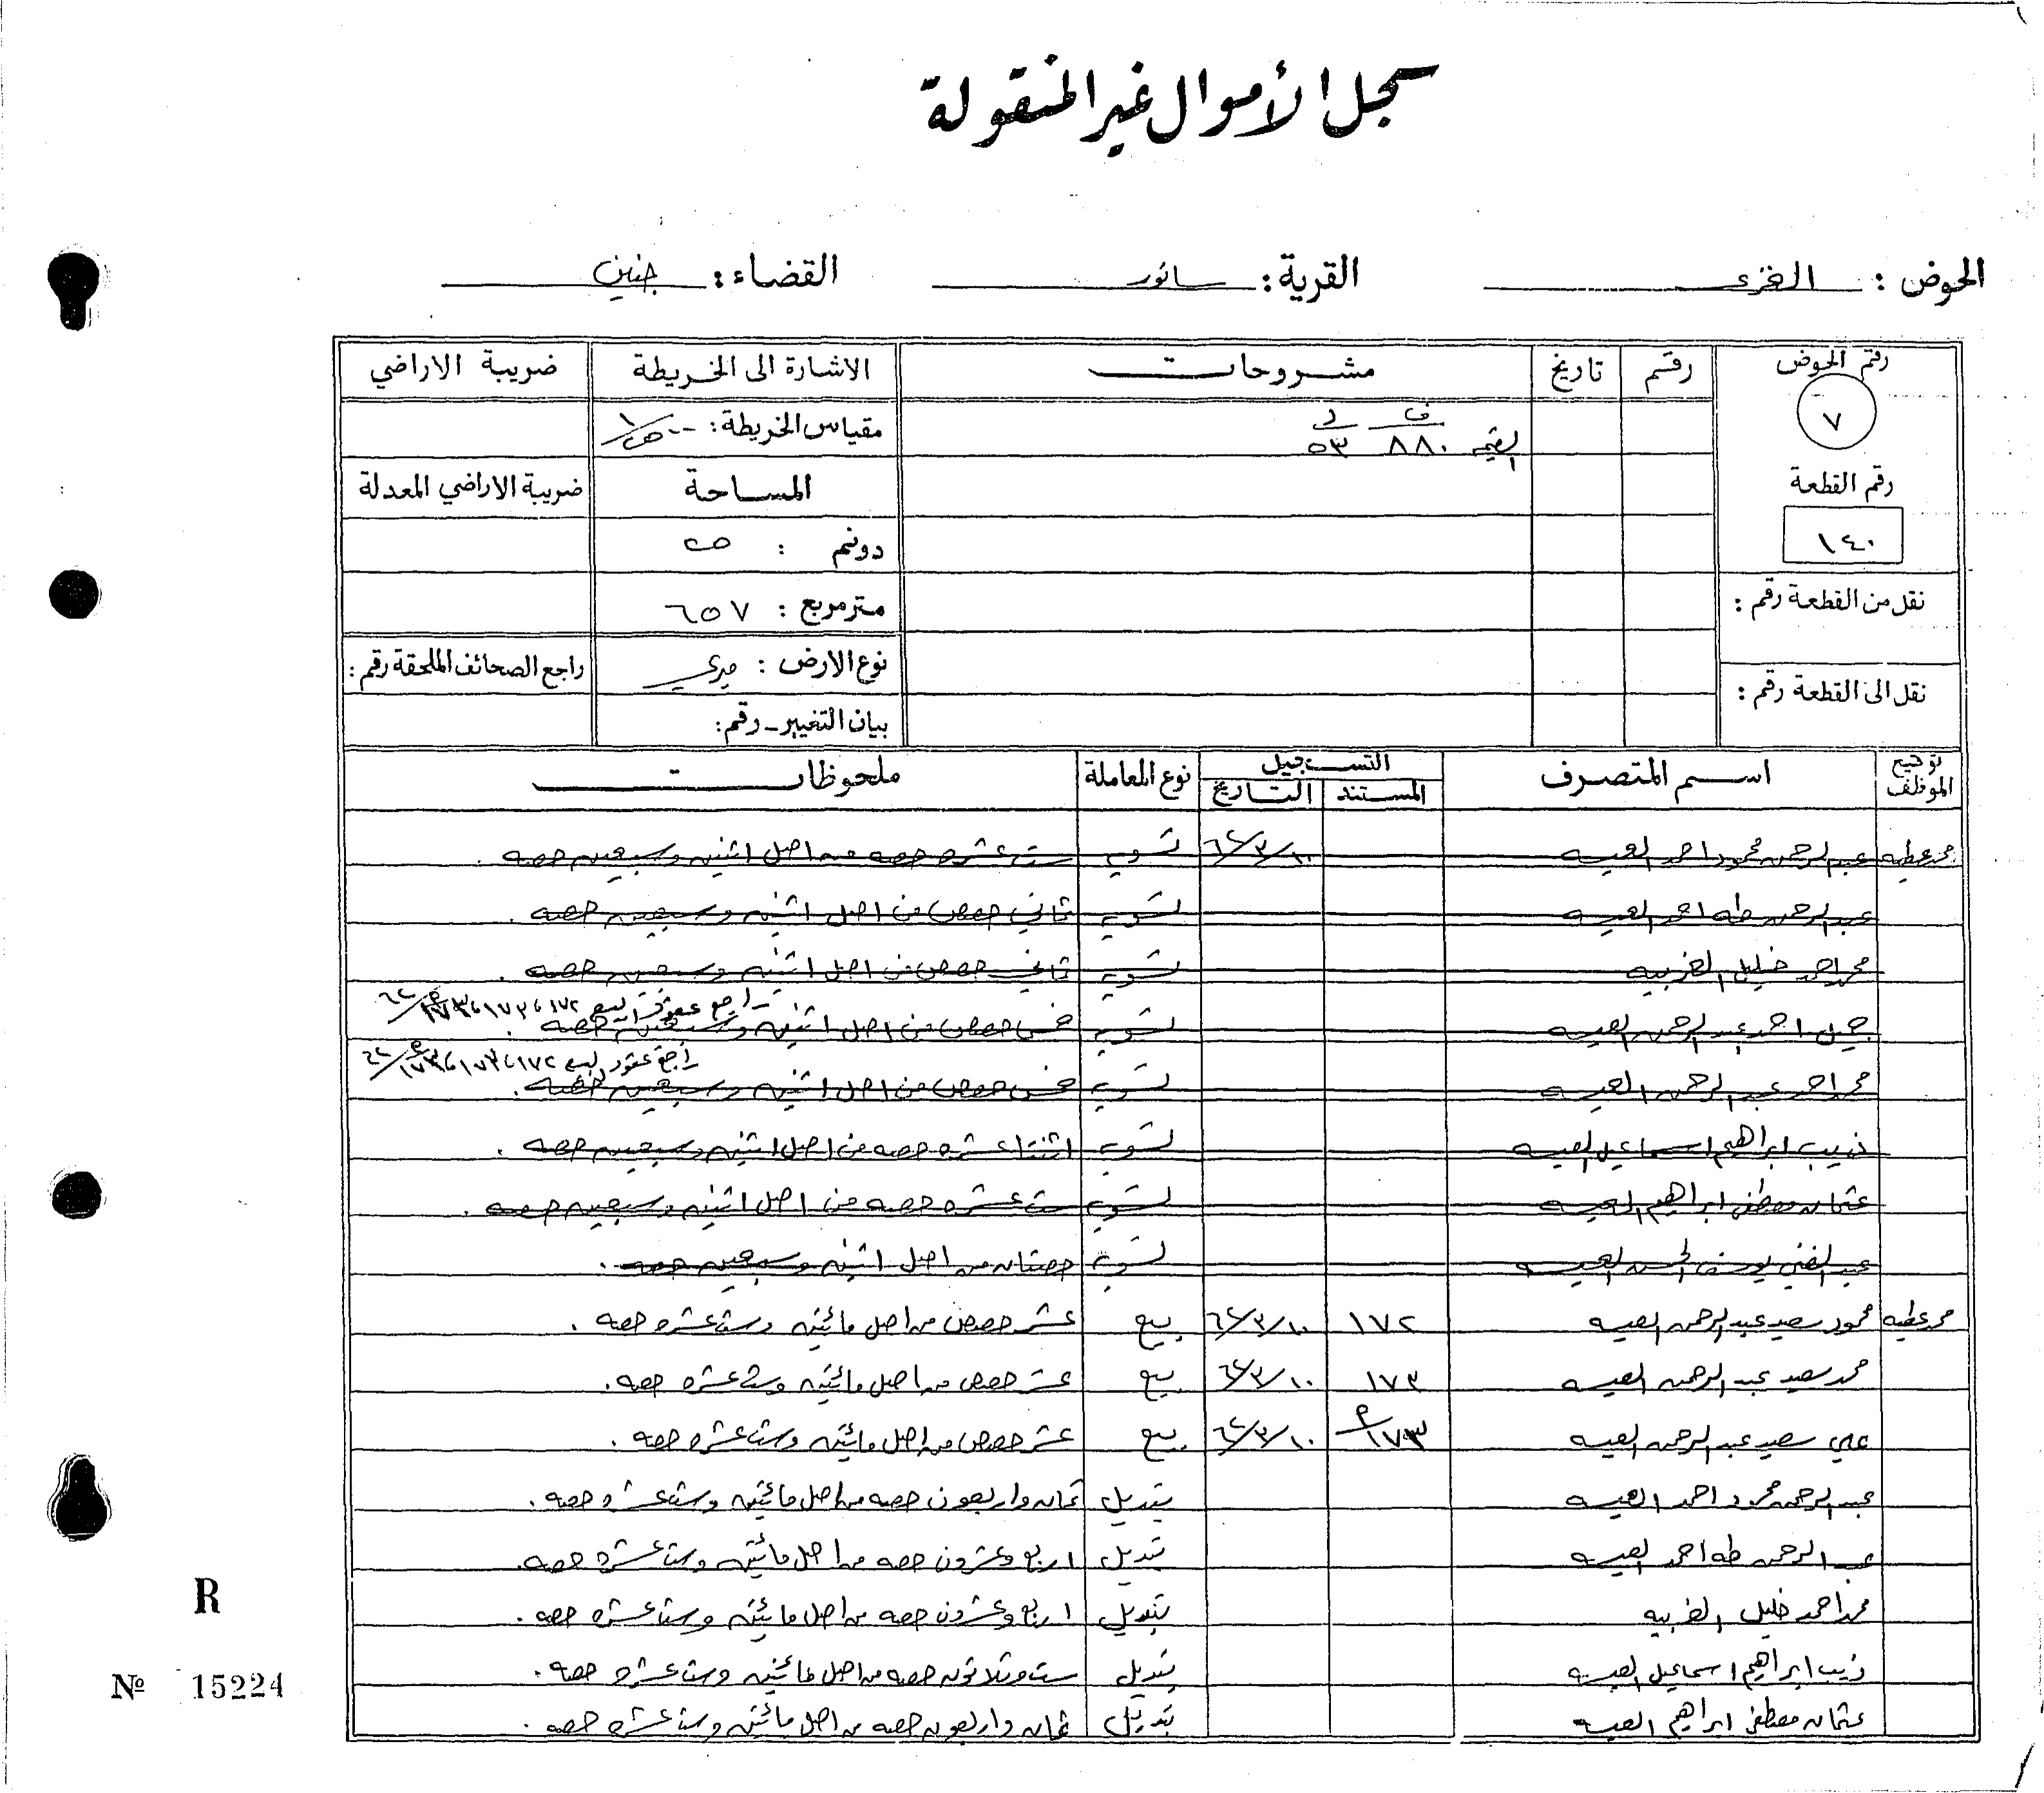 سجل الأموال غير المنقولة
الحوض : الغزى القرية : سانور القضاء : جنين
رقم الحوض رقم تاريخ مشروحات الاشارة الى الخريطة ضريبة الاراضي
٧ ف د مقياس الخريطة :
القيمة ٨٨٠ ٥٣
رقم القطعة المساحة ضريبة الاراضي المعدلة
١٤٠ دونم :
نقل من القطعة رقم : متر مربع : ٦٥٧
نوع الارض : ميري راجع الصحائف الملحقة رقم :
نقل الى القطعة رقم : بيان التغيير - رقم :
توقيع الموظف اسم المتصرف التسجيل نوع المعاملة ملحوظات
المستند التاريخ
محمد عطيه عبد الرحمن محمود احمد العيسه ٦٤/٣/١٠ تسويه ست عشره حصه من اصل اثنين وسبعين حصه .
عبد الرحمن طه احمد العيسه تسويه ثماني حصص من اصل اثنين وسبعين حصه .
محمد احمد خليل الغربيه تسويه ثماني حصص من اصل اثنين وسبعين حصه .
راجع عقود البيع
جميل احمد عبد الرحمن العيسه تسويه خمس حصص من اصل اثنين وسبعين حصه .
راجع عقود البيع
محمد احمد عبد الرحمن العيسه تسويه خمس حصص من اصل اثنين وسبعين حصه .
ذيب ابراهيم اسماعيل العيسه تسويه اثنتا عشره حصه من اصل اثنين وسبعين حصه .
عثمان مصطفى ابراهيم العيسه تسويه ست عشره حصه من اصل اثنين وسبعين حصه .
عبد الغني يوسف الحسن العيسه تسويه حصتان من اصل اثنين وسبعين حصه .
محمد عطيه محمود سعيد عبد الرحمن العيسه ١٧٢ ٦٤/٣/١٠ بيع عشر حصص من اصل مائتين وست عشره حصه .
محمد سعيد عبد الرحمن العيسه ١٧٣ ٦٤/٣/١٠ بيع عشر حصص من اصل مائتين وست عشره حصه .
علي سعيد عبد الرحمن العيسه ١٧٣/م ٦٤/٣/١٠ بيع عشر حصص من اصل مائتين وست عشره حصه .
عبد الرحمن محمود احمد العيسه تبديل ثمان واربعون حصه من اصل مائتين وست عشره حصه .
عبد الرحمن طه احمد العيسه تبديل اربع وعشرون حصه من اصل مائتين وست عشره حصه .
محمد احمد خليل الغربيه تبديل اربع وعشرون حصه من اصل مائتين وست عشره حصه .
ذيب ابراهيم اسماعيل العيسه تبديل ست وثلاثون حصه من اصل مائتين وست عشره حصه .
عثمان مصطفى ابراهيم العيسه تبديل ثمان واربعون حصه من اصل مائتين وست عشره حصه .
R
№ 15224